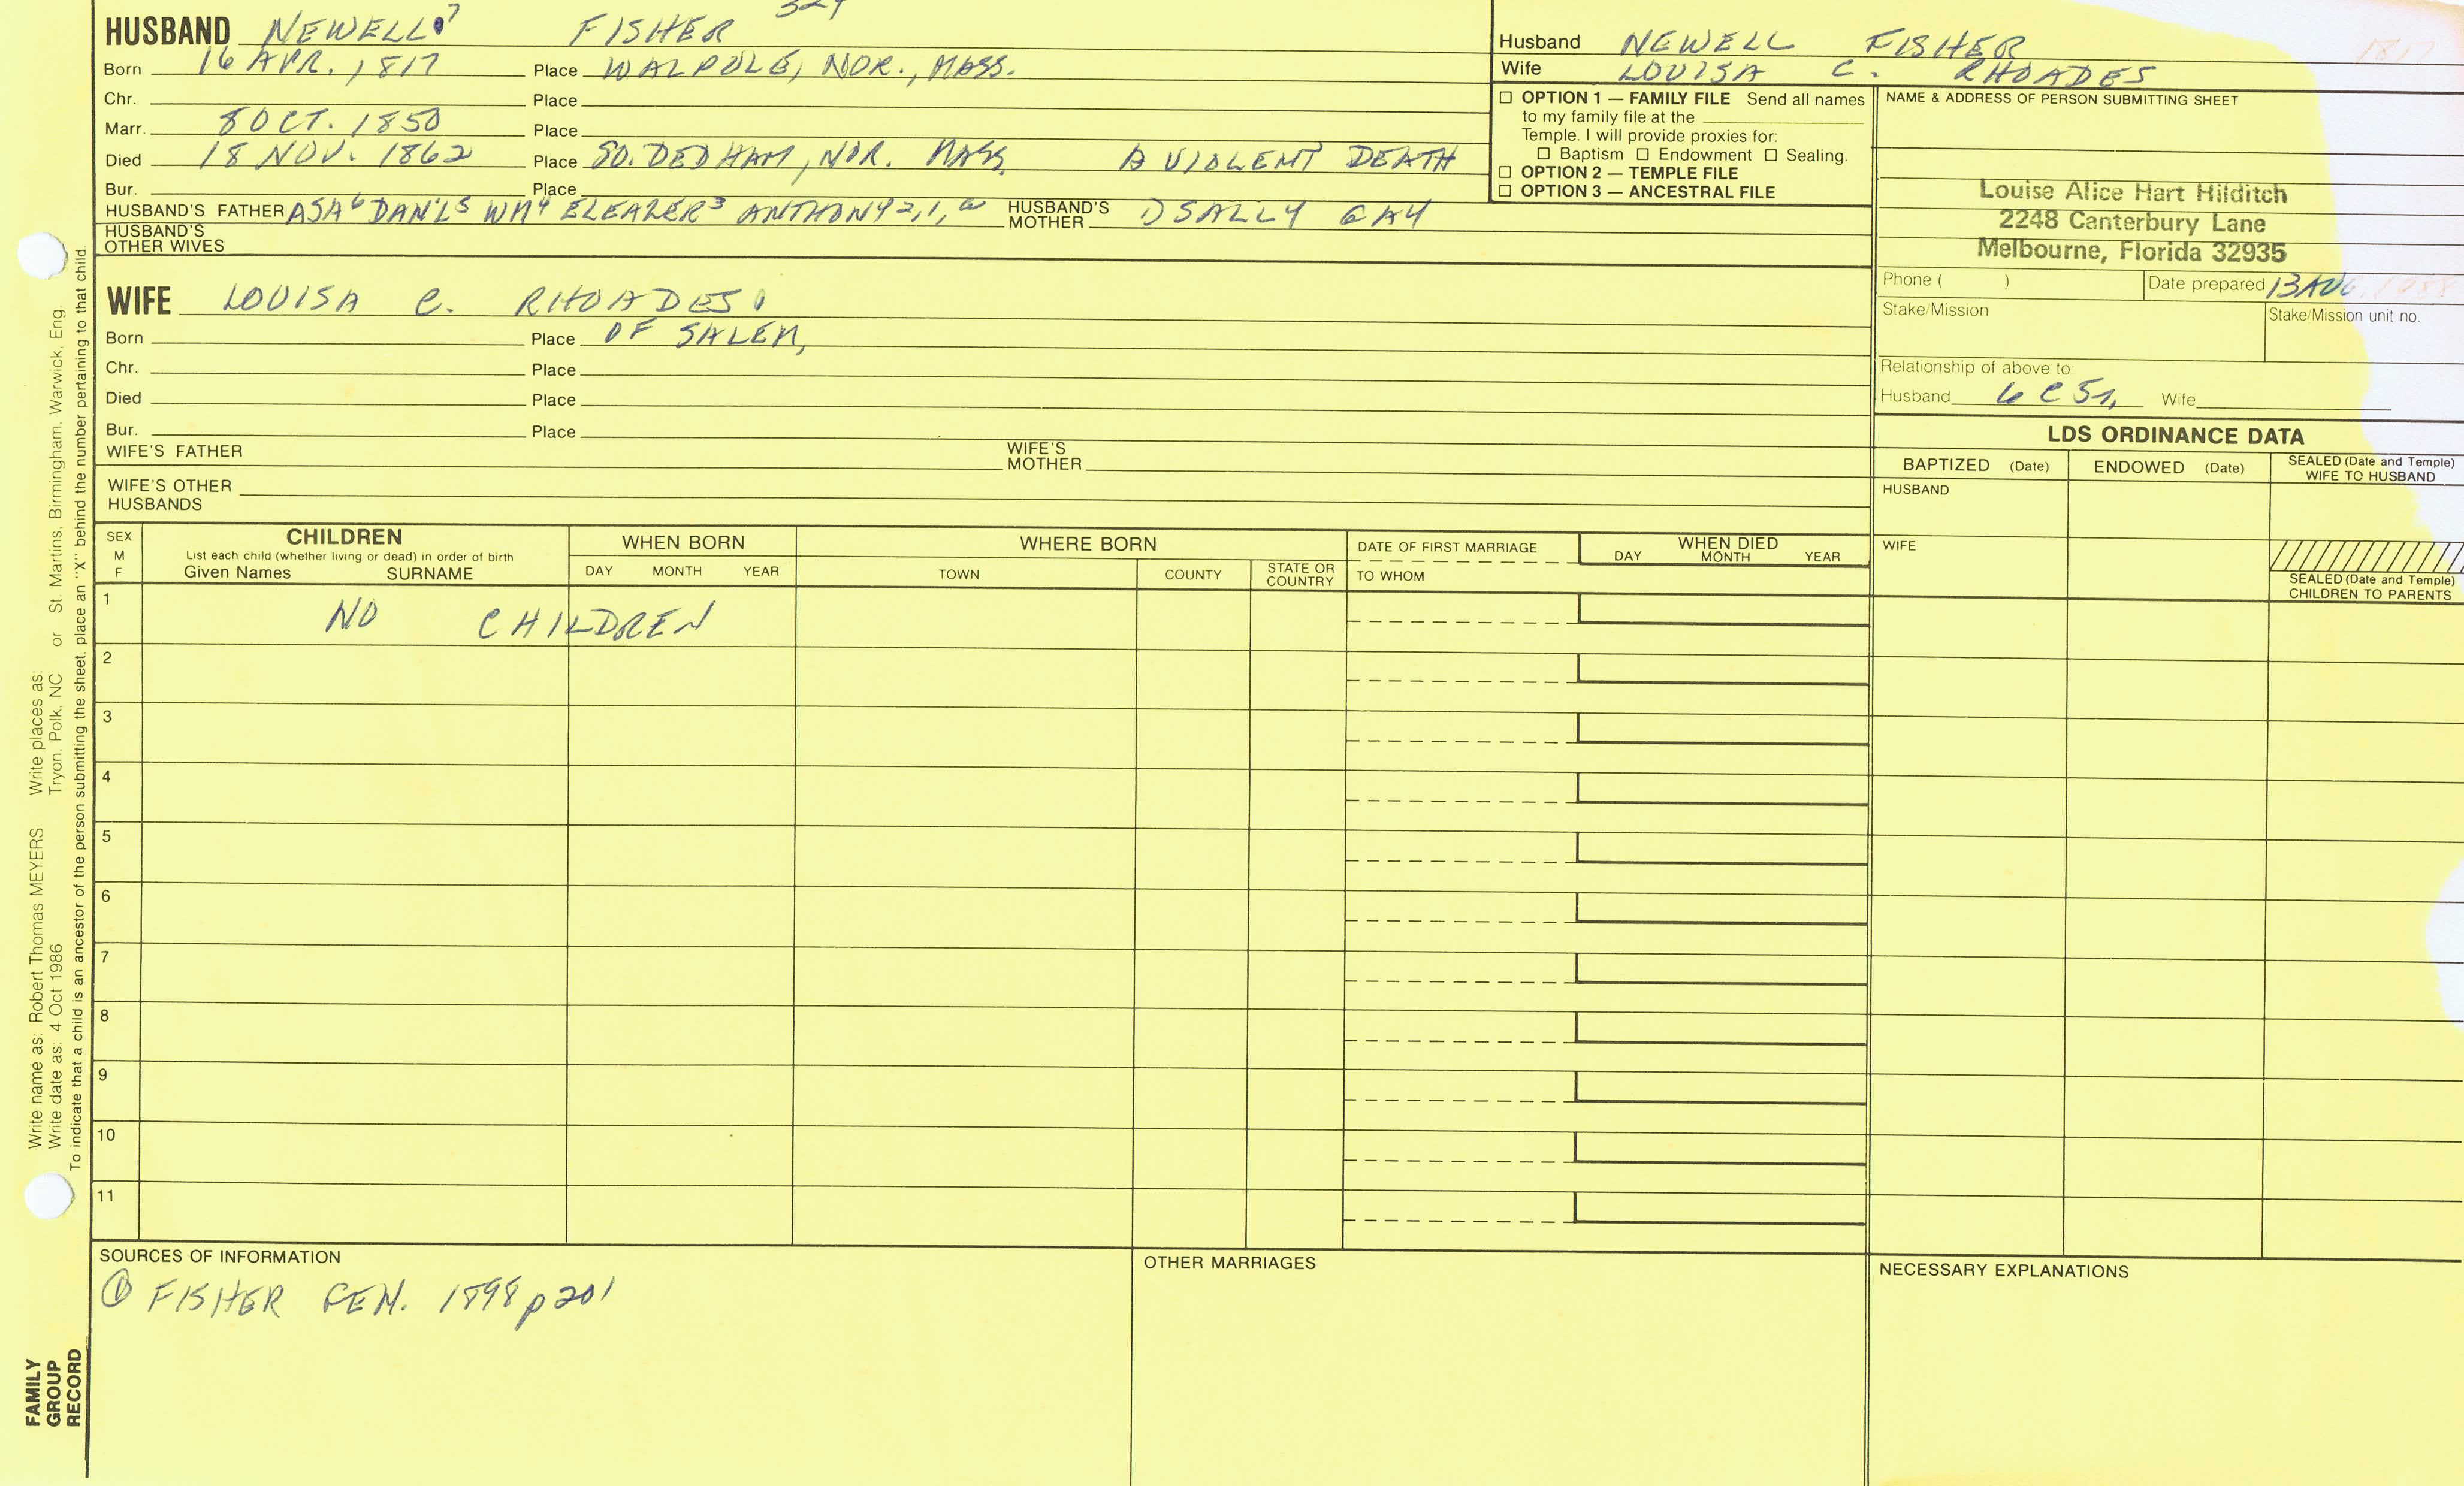 HUSBAND NEWELL⁷ FISHER
Born 16 APR. 1817 Place WALPOLE, NOR., MASS.
Chr. Place
Marr. 8 OCT. 1850 Place
Died 18 NOV. 1862 Place SO. DEDHAM, NOR. MASS. A VIOLENT DEATH
Bur. Place
HUSBAND'S FATHER ASA⁶ DAN'L⁵ WM⁴ ELEAZER³ ANTHONY²,¹, HUSBAND'S MOTHER 1) SALLY GAY
HUSBAND'S OTHER WIVES
Husband NEWELL FISHER
Wife LOUISA C. RHOADES
1817
☐ OPTION 1 — FAMILY FILE Send all names
to my family file at the
Temple. I will provide proxies for:
☐ Baptism ☐ Endowment ☐ Sealing.
☐ OPTION 2 — TEMPLE FILE
☐ OPTION 3 — ANCESTRAL FILE
NAME & ADDRESS OF PERSON SUBMITTING SHEET
Louise Alice Hart Hilditch
2248 Canterbury Lane
Melbourne, Florida 32935
Phone ( ) Date prepared 13 AUG. 1988
Stake/Mission Stake/Mission unit no.
Relationship of above to:
Husband 6C5R Wife
WIFE LOUISA C. RHOADES
Born Place OF SALEM,
Chr. Place
Died Place
Bur. Place
WIFE'S FATHER WIFE'S MOTHER
WIFE'S OTHER HUSBANDS
LDS ORDINANCE DATA
BAPTIZED (Date) ENDOWED (Date) SEALED (Date and Temple) WIFE TO HUSBAND
HUSBAND
WIFE
SEALED (Date and Temple) CHILDREN TO PARENTS
SEX M F
CHILDREN
List each child (whether living or dead) in order of birth
Given Names SURNAME
WHEN BORN
DAY MONTH YEAR
WHERE BORN
TOWN COUNTY STATE OR COUNTRY
DATE OF FIRST MARRIAGE
TO WHOM
WHEN DIED
DAY MONTH YEAR
1 NO CHILDREN
2
3
4
5
6
7
8
9
10
11
SOURCES OF INFORMATION
① FISHER GEN. 1898 p201
OTHER MARRIAGES
NECESSARY EXPLANATIONS
Write name as: Robert Thomas MEYERS Write places as:
Write date as: 4 Oct 1986 Tryon, Polk, NC or St. Martins, Birmingham, Warwick, Eng
To indicate that a child is an ancestor of the person submitting the sheet, place an "X" behind the number pertaining to that child.
FAMILY
GROUP
RECORD